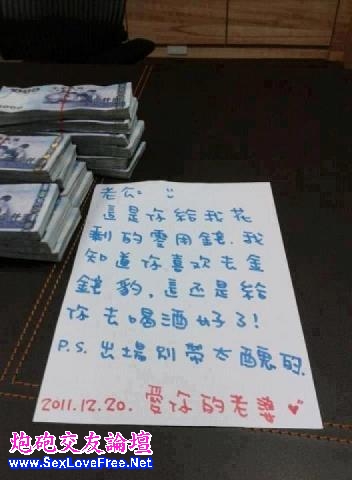 1000
老公 :)
這是你給我花
剩的零用錢.我
知道你喜欢去金
錢豹,這还是給
你去喝酒好了!
P.S. 出場別帶太醜的.
2011.12.20. 愛你的老婆 ♥
炮砲交友論壇
www.SexLoveFree.Net